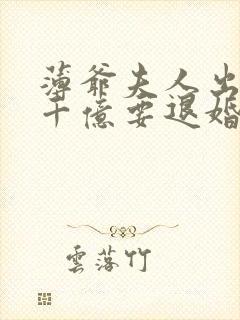 薄爺夫人出
十億要退婚
雲落竹